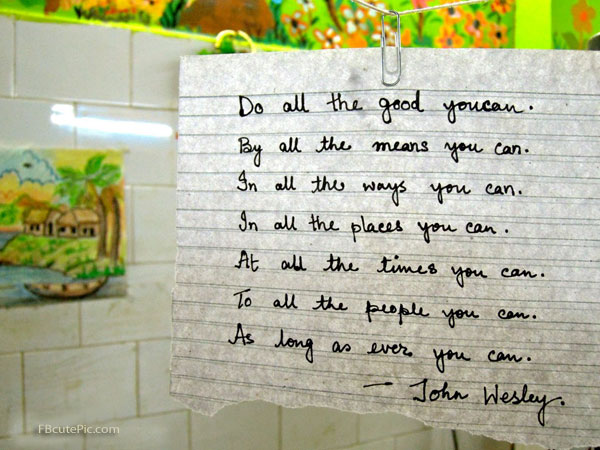 Do all the good youcan.
By all the means you can.
In all the ways you can.
In all the places you can.
At all the times you can.
To all the people you can.
As long as ever you can.
— John Wesley.
FBcutePic.com